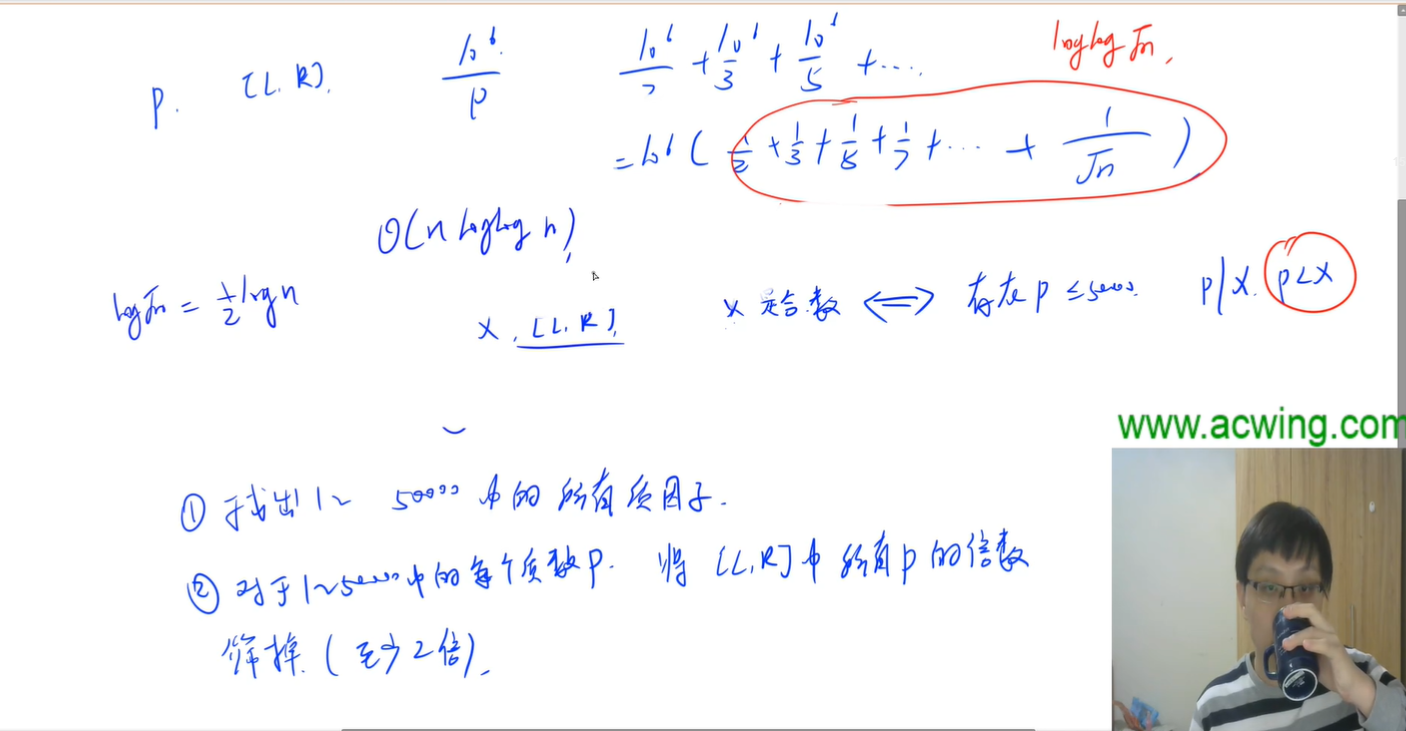 p. [L, R]. 10^6/p 10^6/2 + 10^6/3 + 10^6/5 + .... loglog√n.
= 10^6 ( 1/2 + 1/3 + 1/5 + 1/7 + ... + 1/√n )
O(n loglog n),
log√n = 1/2 log n
x, [L, R], x 是合数 <=> 存在p ≤ 50000. p|x. p<x
www.acwing.com
① 找出1~50000中的所有质因子.
② 对于1~50000中的每个质数p. 将[L,R]中所有p的倍数
筛掉. (至少2倍).